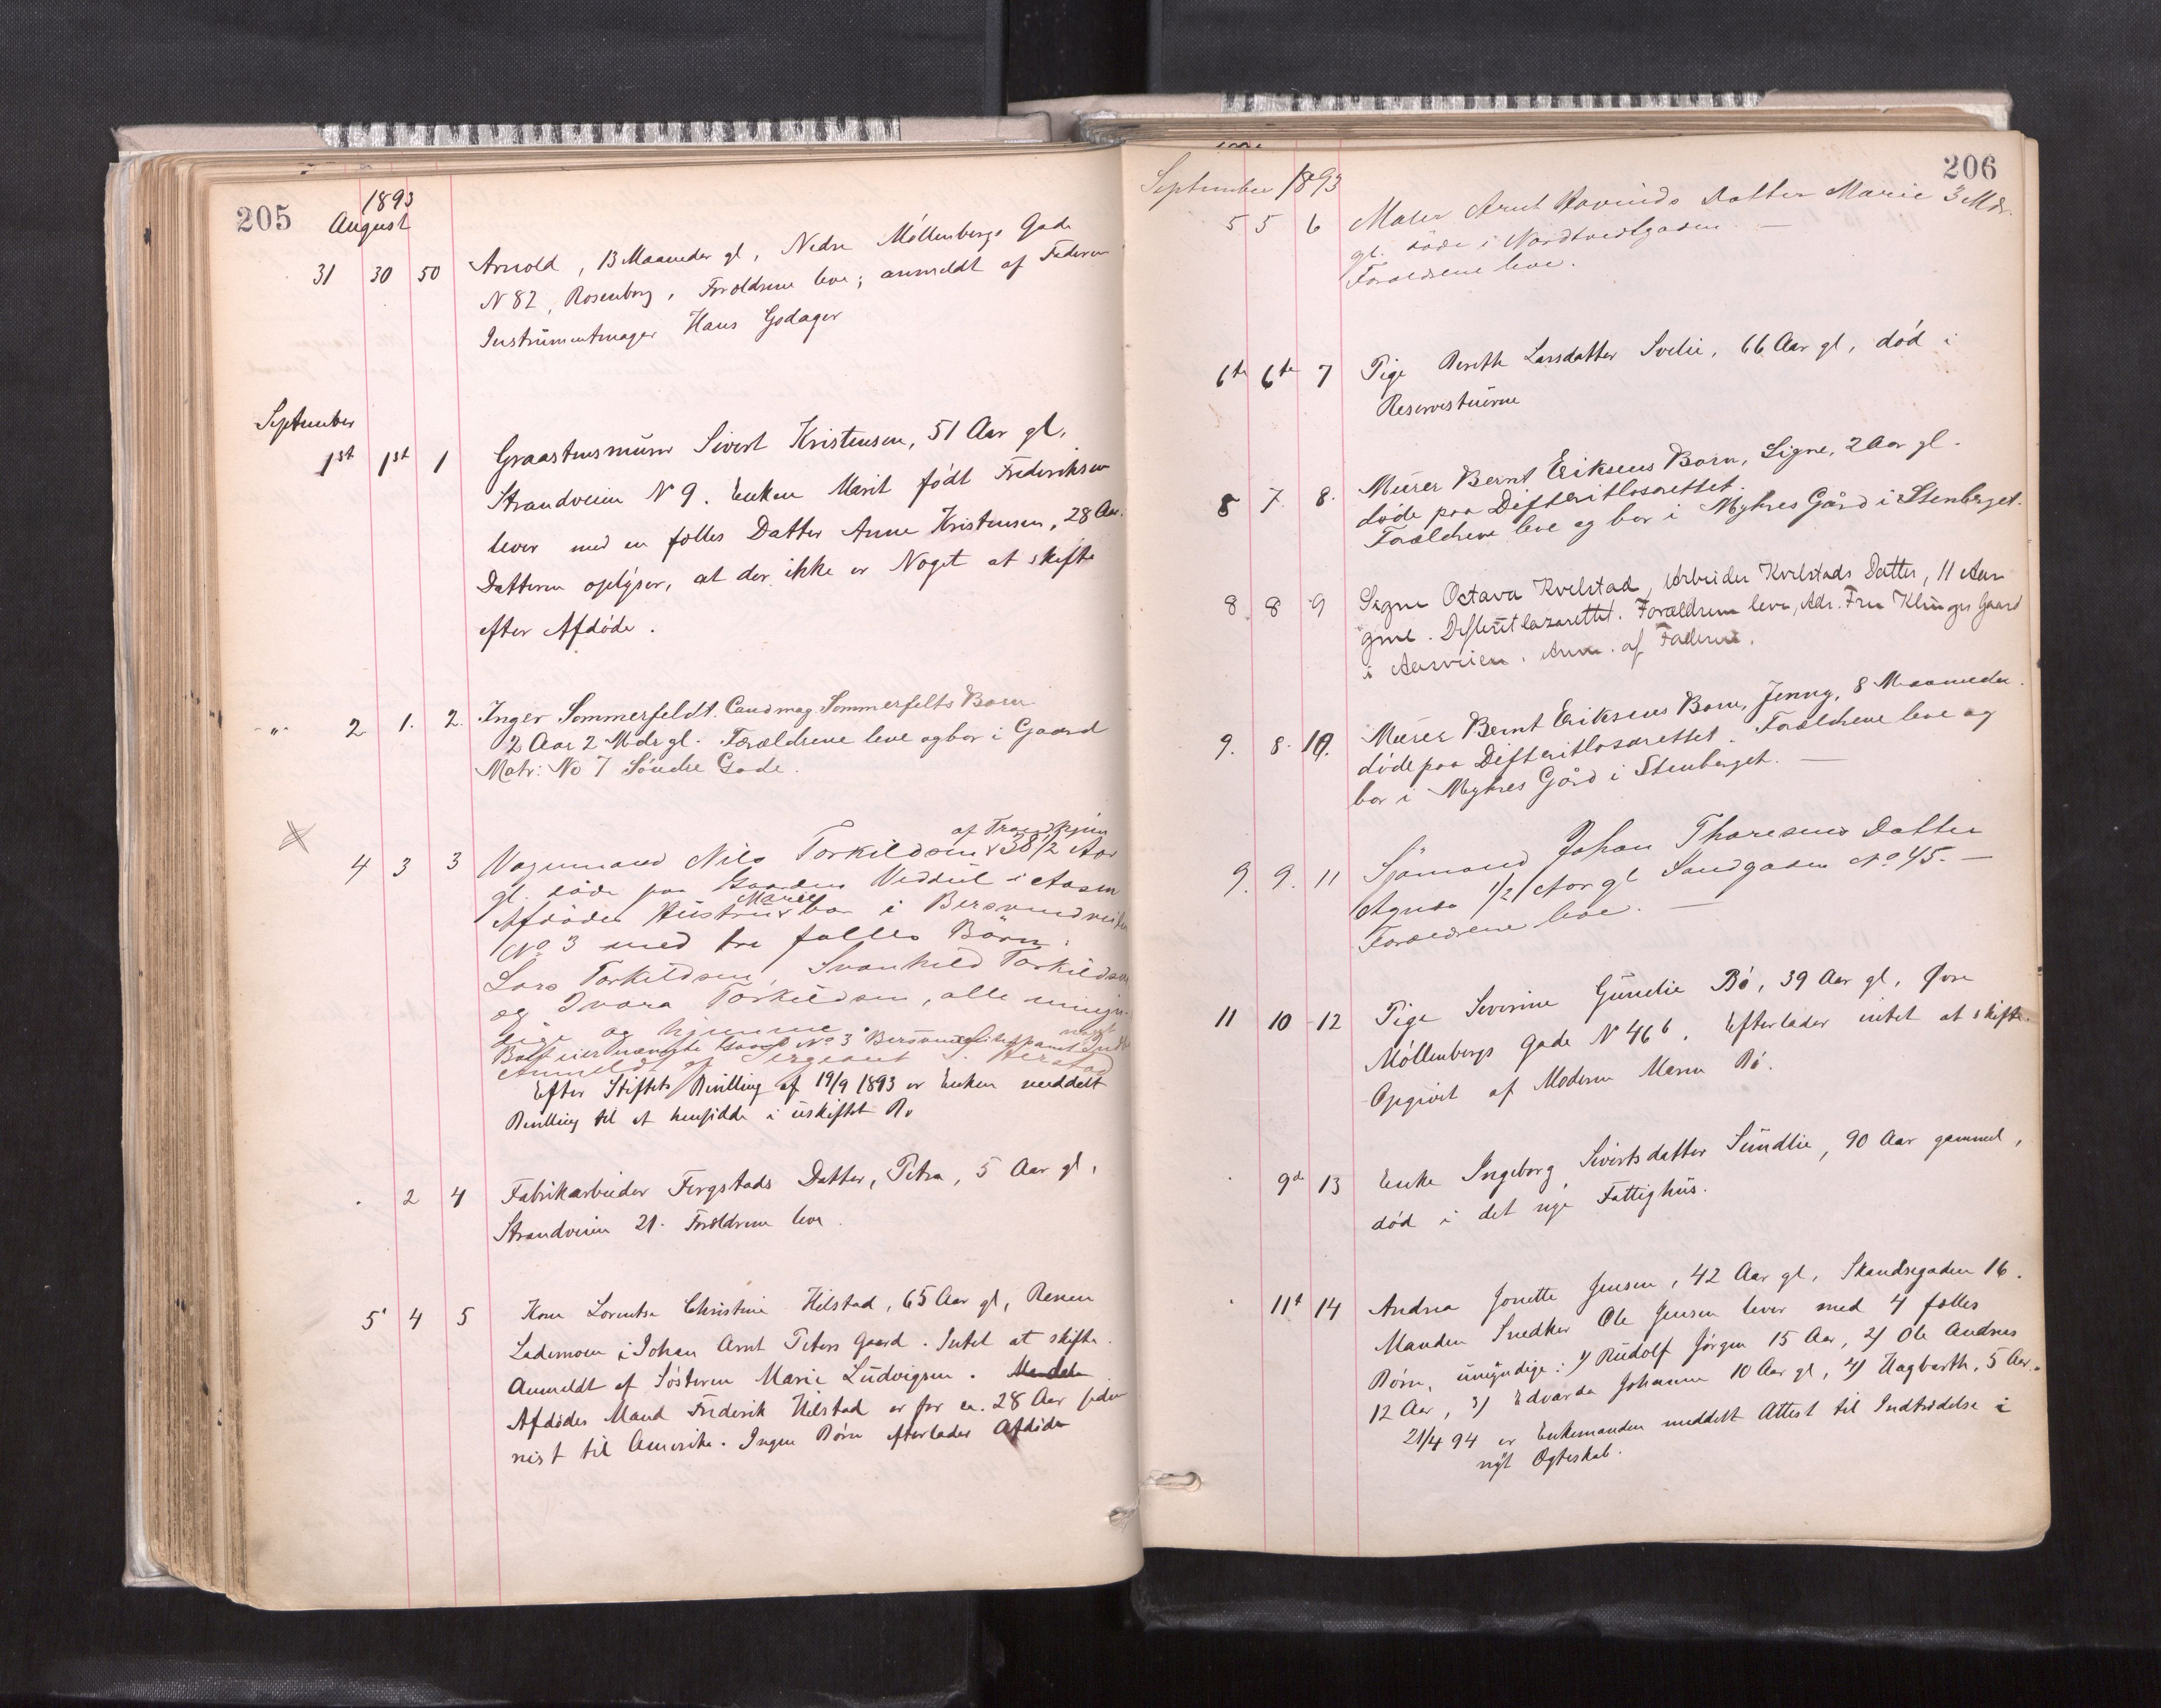 205
1893
August
31 30 50 Arnold, 13 Maaneder gl, Nedre Möllenbergs Gade
N 82, Rosenborg, Forældrene leve; anmeldt af Faderen
Instrumentmager Hans Godager
September
1st 1st 1 Graastensmurer Sivert Kristensen, 51 Aar gl,
Strandveien N 9. Enken Marit født Frederiksen
lever med en fælles Datter Anne Kristensen, 28 Aar.
Datteren oplyser, at der ikke er Noget at skifte
efter Afdøde.
" 2 1. 2. Inger Sommerfeldt. Cand mag. Sommerfelts Barn
2 Aar 2 Mdr gl. Forældrene leve og bor i Gaard
Matr: No 7 Söndre Gade.
af Trondhjem
4 3 3 Vognmand Nils Torkildsen 38 1/2 Aar
gl. döde paa Gaarden i Aasen
Marie
Afdödes Hustru bor i Bersvendveiten
No 3 med tre fælles Börn:
Lars Torkildsen, Svanhild Torkildsen
og Ivara Torkildsen, alle umyn-
dige og hjemme.
Boet eier nævnte Gaard No 3 Bersvendveiten samt noget Indbo
Anmeldt af Sergeant
Efter Stiftets Bevilling af 19/9 1893 er Enken meddelt
Bevilling til at hensidde i uskiftet Bo
. 2 4 Fabrikarbeider Fergstads Datter, Petra, 5 Aar gl,
Strandveien 21. Forældrene leve.
5 4 5 Kone Lorentse Christine Hilstad, 65 Aar gl,
Lademoen i Johan Arnt Peters Gaard. Intet at skifte.
Anmeldt af Søsteren Marie Ludvigsen.
Afdødes Mand Frederik Hilstad er for ca. 28 Aar siden
reist til Amerika. Ingen Børn efterlader Afdøde
206
September 1893
5 5 6 Maler Arnt Datter Marie 3 Mdr.
gl. döde i
Forældrene leve.
6te 6te 7 Pige Berith Larsdatter 66 Aar gl, død i
Reservestuerne
8 7. 8. Murer Bernt Eriksens Barn, Signe, 2 Aar gl.
döde paa Difteritlasarettet.
Forældrene leve og bor i Myhres Gård i Stenberget.
8 8 9 Signe Octava Kvelstad, Arbeider Kvelstads Datter, 11 Aar
gml. Difteritlazarettet. Forældrene leve, Adr. Fru Klinges Gaard
i Anm. af Faderen.
9. 8. 10. Murer Bernt Eriksens Barn, Jenny, 8 Maaneder.
döde paa Difteritlasarettet. Forældrene leve og
bor i Myhres Gård i Stenberget. —
9. 9. 11 Sjömand Johan Tharesens Datter
Agnes 1/2 Aar gl Sandgaden No 45. —
Forældrene leve. —
11 10 12 Pige Severine Gunelie Bø, 39 Aar gl, Øvre
Möllenbergs Gade N 46 b. Efterlader intet at skifte.
Opgivet af Moderen Maren Bø.
. 9de 13 Enke Ingeborg Sivertsdatter Sundlie, 90 Aar gammel,
død i det nye Fattighus.
. 11t 14 Andrea Jonette Jensen, 42 Aar gl, Skandsegaden 16.
Manden Snedker Ole Jensen lever med 4 fælles
Børn, umyndige: 1) Rudolf Jørgen 15 Aar, 2) Ole Andreas
12 Aar, 3) Edvarda Johanne 10 Aar gl, 4) Hagbarth, 5 Aar.
21/4 94 er Enkemanden meddelt Attest til Indtrædelse i
nyt Ægteskab.